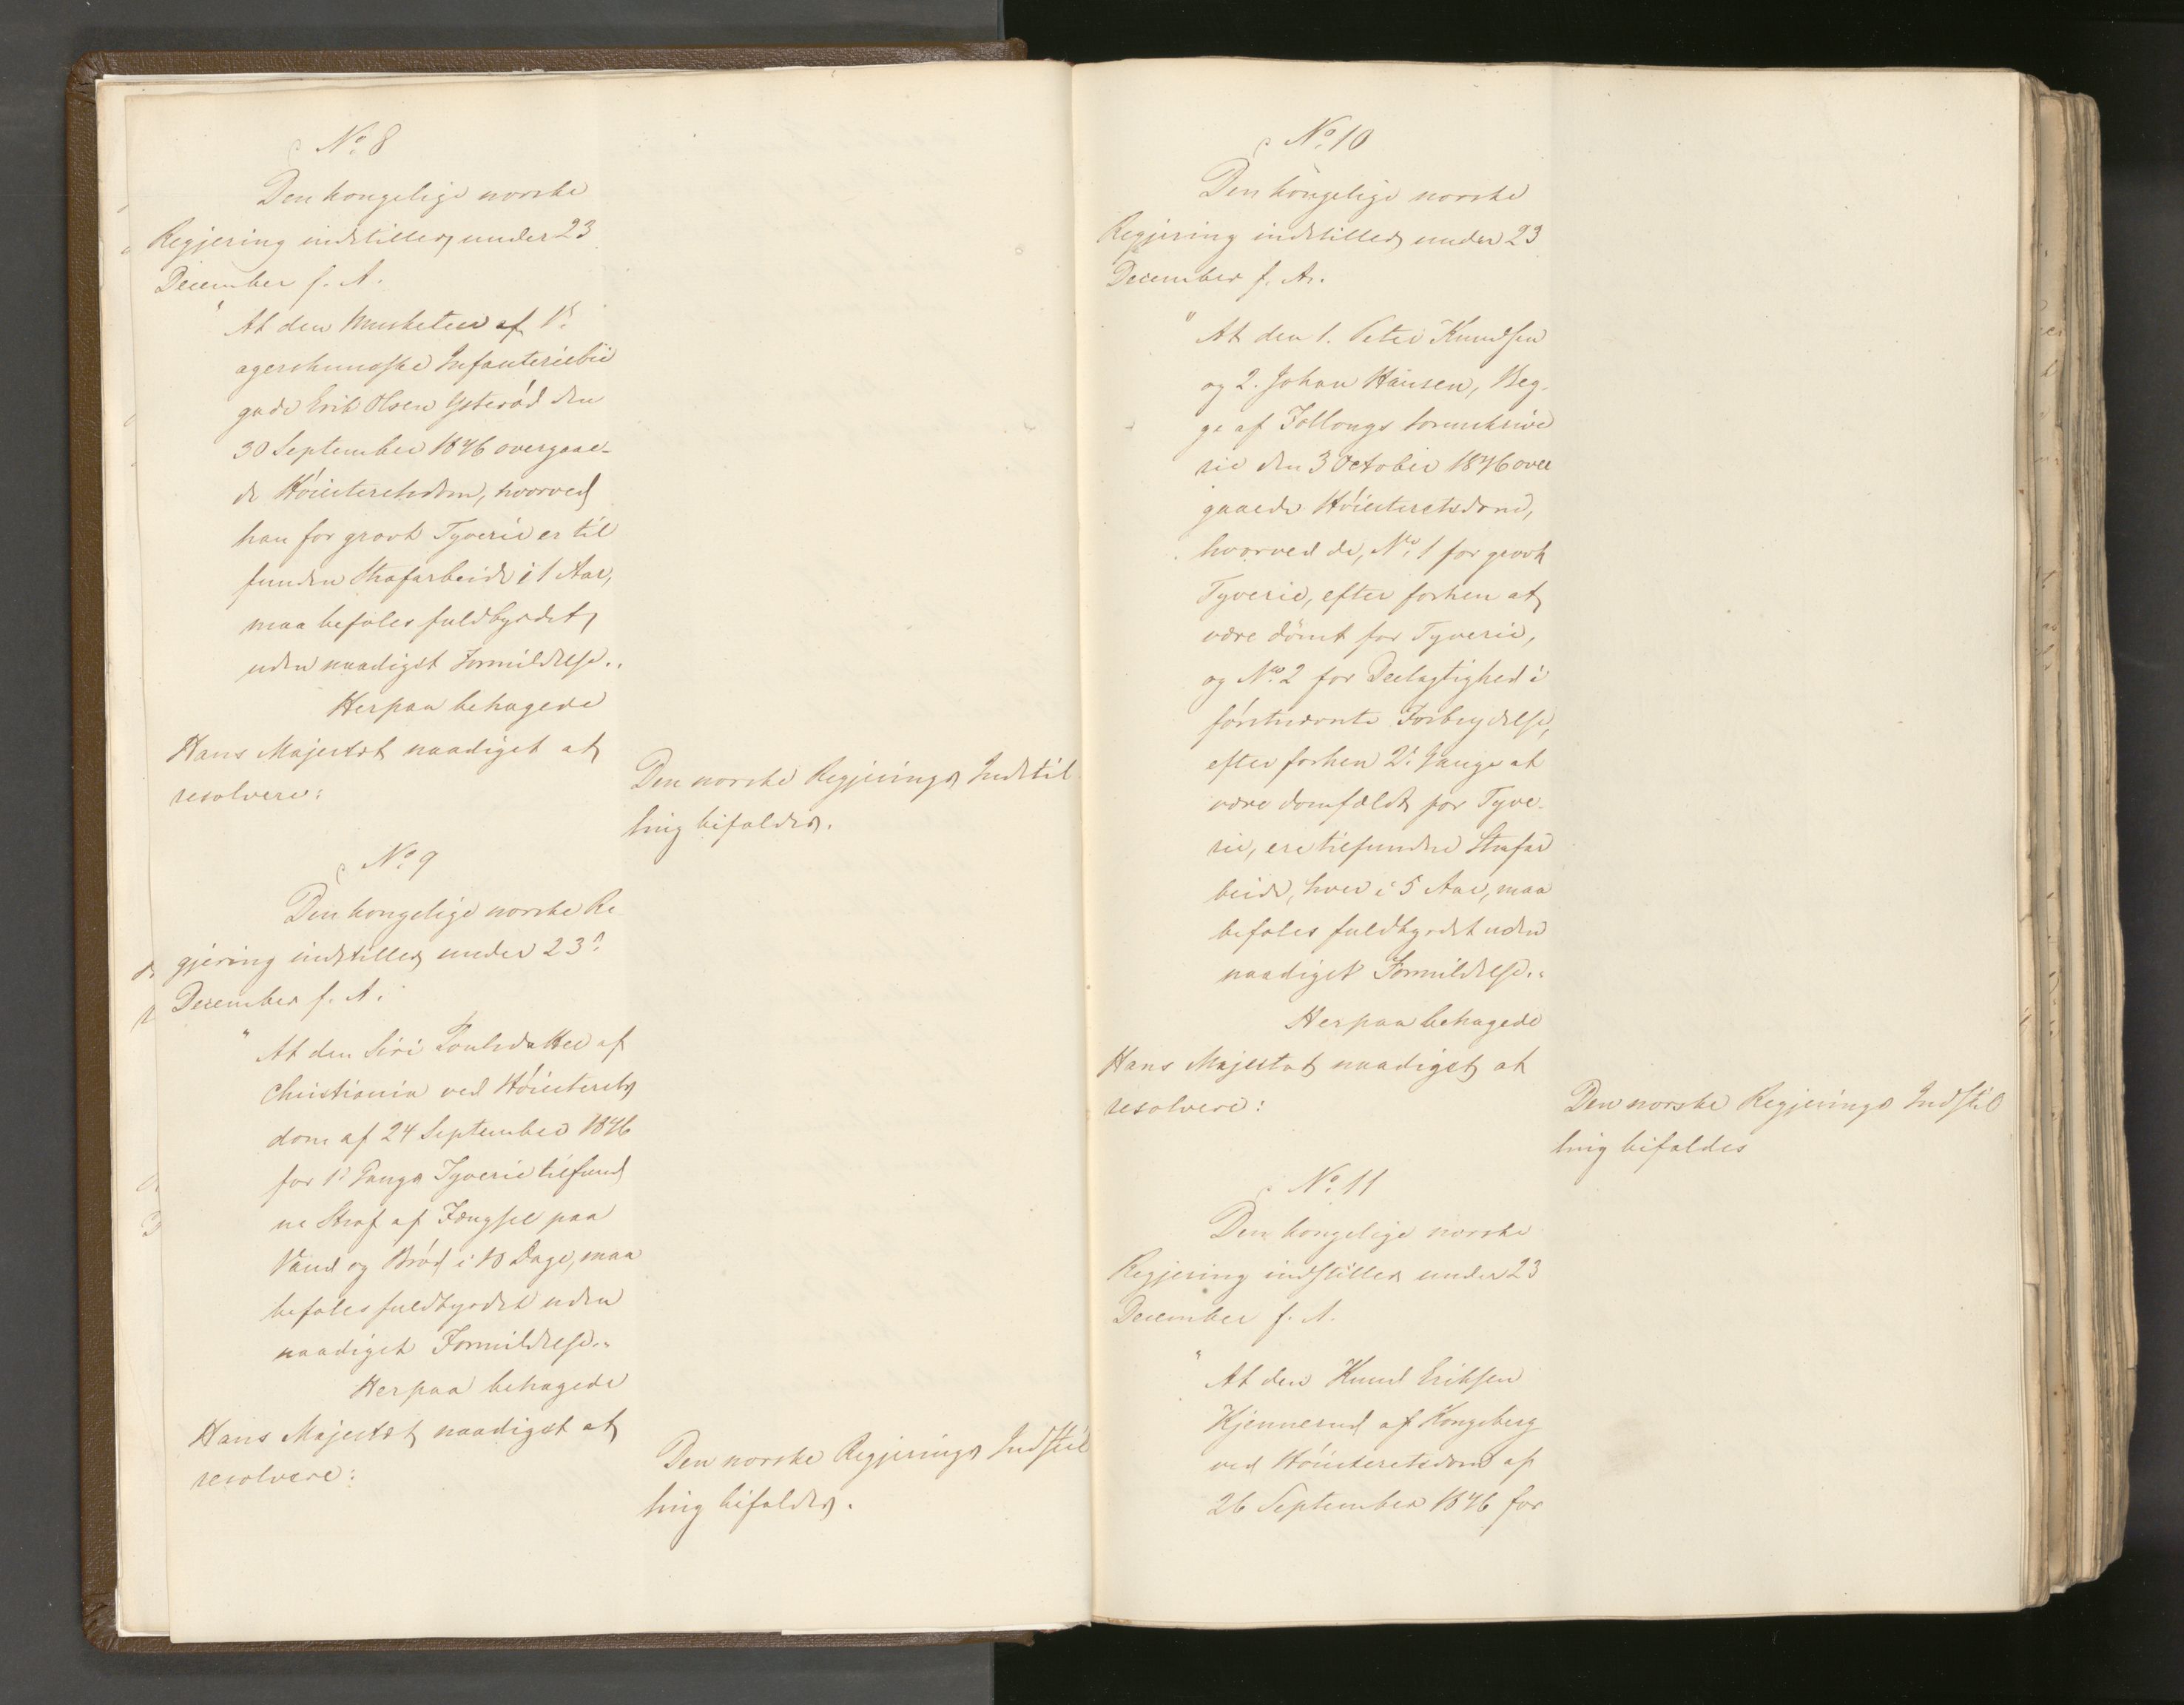 No. 8
Den kongelige norske
Regjering indstiller under 23
December f. A.
"At den Musketeer af 1ste
agershuusske Infanteriebri
gade Erik Olsen Ysterød den
30 September 1846 overgaae-
de Høiesteretsdom, hvorved
han for grovt Tyverie er til
funden Strafarbeide i 1 Aar,
maa befales fuldbyrdet,
uden naadigst Formildelse."
Herpaa behagede
Hans Majestæt naadigst at
resolvere:
Den norske Regjerings Indstil
ling bifaldes.
No. 9
Den kongelige norske Re
gjering indstiller under 23de
December f. A.
"At den Siri Poulsdatter af
Christiania ved Høiesterets
dom af 24 September 1846
for 1ste Gangs Tyverie tilfund
ne Straf af Fængsel paa
Vand og Brød i 10 Dage, maa
befales fuldbyrdet uden
naadigst Formildelse."
Herpaa behagede
Hans Majestæt naadigst at
resolvere:
Den norske Regjerings Indstil
ling bifaldes.
No. 10
Den kongelige norske
Regjering indstiller under 23
December f. Ar.
"At den 1. Peter Knudsen
og 2. Johan Hansen, Beg-
ge af Follougs Sorenskrive
rie den 3 October 1846 over
gaaede Høiesteretsdom,
hvorved de, No. 1 for grovt
Tyverie, efter forhen at
være dømt for Tyverie,
og No. 2 for Deelagtighed i
førstnævnte Forbrydelse,
efter forhen 2de Gange at
være domfældt for Tyve-
rie, ere tilfundne Strafar
beide, hver i 5 Aar, maa
befales fuldbyrdet uden
naadigst Formildelse."
Herpaa behagede
Hans Majestæt naadigst at
resolvere:
Den norske Regjerings Indstil
ling bifaldes
No. 11
Den kongelige norske
Regjering indstiller under 23
December f. A.
"At den Knud Eriksen
Kjennerud af Kongsberg
ved Høiesteretsdom af
26 September 1846 for